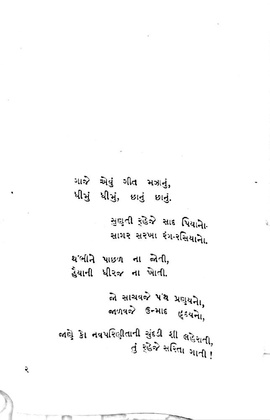 ગાજે એવું ગીત મઝાનું,
ધીમું ધીમું, છાનું છાનું.
સુણતી રહેજે સાદ પિયાનો.
સાગર સરખા રંગ-રસિયાનો.
થંભીને પાછળ ના જોતી,
હૈયાની ધીરજ ના ખોતી.
જો સાચવજે પંથ પ્રણયનો,
જાળવજે ઉન્માદ હૃદયનો,
જાણે કો નવપરિણીતાની ચુંદડી શી લહેરાતી,
તું રહેજે સરિતા ગાતી !
૨